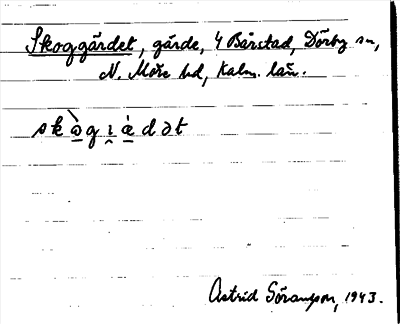 Skoggärdet, gärde, 4 Bårstad, Dörby sn,
N. Möre hd, Kalm. län.
skò̱gi̯ä̱̀dət
Astrid Göransson, 1943.